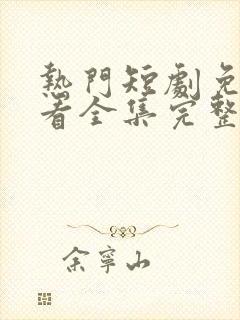 熱門短劇免
看全集完整
余寧山